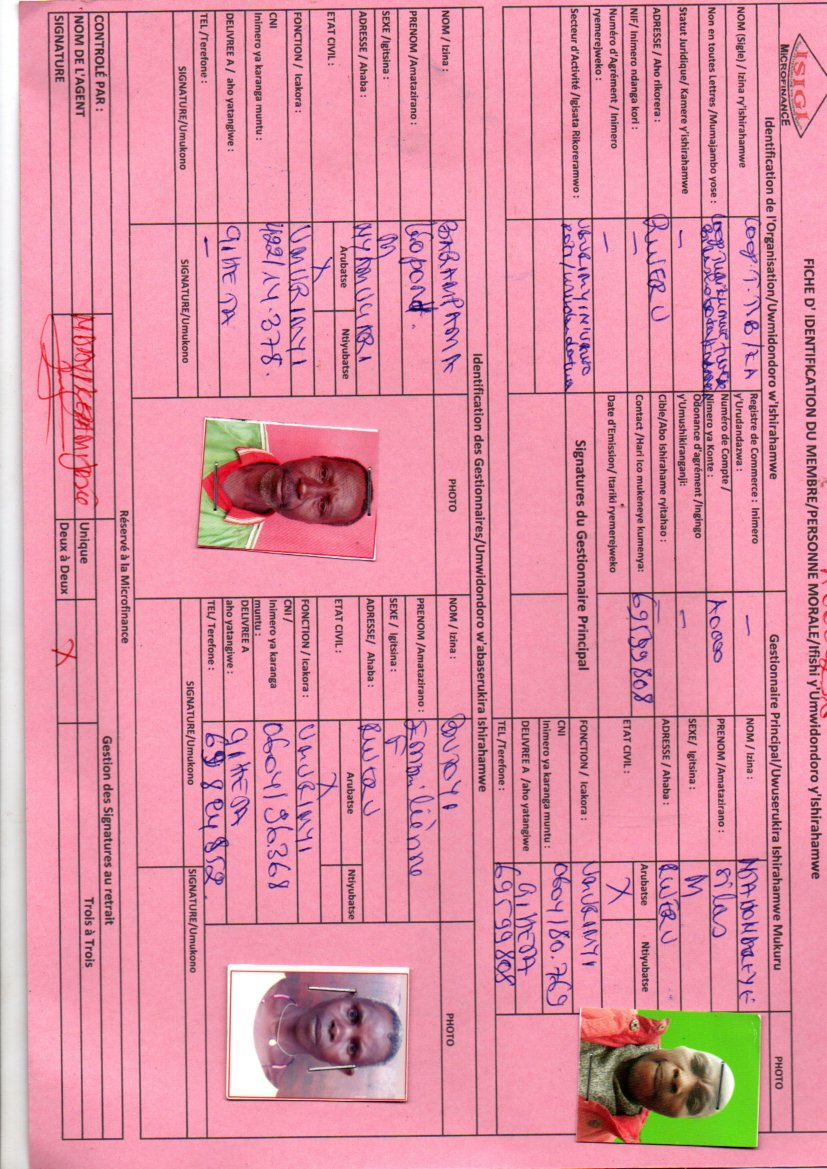 ISIGI
MICROFINANCE
FICHE D' IDENTIFICATION DU MEMBRE/PERSONNE MORALE/Ifishi y'Umwidondoro y'Ishirahamwe
Identification de l'Organisation/Uwmidondoro w'Ishirahamwe
NOM (Sigle) / Izina ry'ishirahamwe
Coop. T.
Non en toutes Lettres /Mumajambo yose :
Statut Juridique/ Kamere y'ishirahamwe
—
ADRESSE / Aho rikorera :
RWERU
NIF/ Inimero ndanga kori :
—
Numéro d'Agrément / Inimero
ryemerejweko :
—
Secteur d'Activité /Igisata Rikoreramwo :
Registre de Commerce : Inimero
y'Urudandazwa :
—
Numéro de Compte /
Nimero ya Konte :
A0000
Odonance d'agrément /Ingingo
y'Umushikiranganji:
—
Cible/Abo Ishirahame ryitahao :
Contact /Hari ico mukeneye kumenya:
69599808
Date d'Emission/ Itariki ryemerejweko
Signatures du Gestionnaire Principal
Gestionnaire Principal/Uwuserukira Ishirahamwe Mukuru
NOM / Izina :
PRENOM /Amatazirano :
Silas
SEXE/ Igitsina :
M
ADRESSE / Ahaba :
RWERU
ETAT CIVIL :
Arubatse
Ntiyubatse
X
FONCTION / Icakora :
UMURIMYI
CNI
Inimero ya karanga muntu :
0604/80.769
DELIVREE A /aho yatangiwe
GIHETA
TEL /Terefone :
69599808
PHOTO
Identification des Gestionnaires/Umwidondoro w'abaserukira Ishirahamwe
NOM / Izina :
BARAMPAMA
PRENOM /Amatazirano :
SEXE /Igitsina :
M
ADRESSE / Ahaba :
ETAT CIVIL :
Arubatse
Ntiyubatse
X
FONCTION / Icakora :
UMURIMYI
CNI
Inimero ya karanga muntu :
422/14.378.
DELIVREE A / aho yatangiwe :
GIHETA
TEL /Terefone :
—
SIGNATURE/Umukono
SIGNATURE/Umukono
PHOTO
NOM / Izina :
PRENOM /Amatazirano :
Emmilienne
SEXE / Igitsina :
F
ADRESSE/ Ahaba :
RWERU
ETAT CIVIL :
Arubatse
Ntiyubatse
X
FONCTION / Icakora :
UMURIMYI
CNI /
Inimero ya karanga
muntu :
0604/96.368
DELIVREE A
aho yatangiwe :
GIHETA
TEL/ Terefone :
SIGNATURE/Umukono
SIGNATURE/Umukono
PHOTO
Réservé à la Microfinance
CONTROLÉ PAR :
NOM DE L'AGENT
SIGNATURE
Gestion des Signatures au retrait
Unique
Deux à Deux
X
Trois à Trois